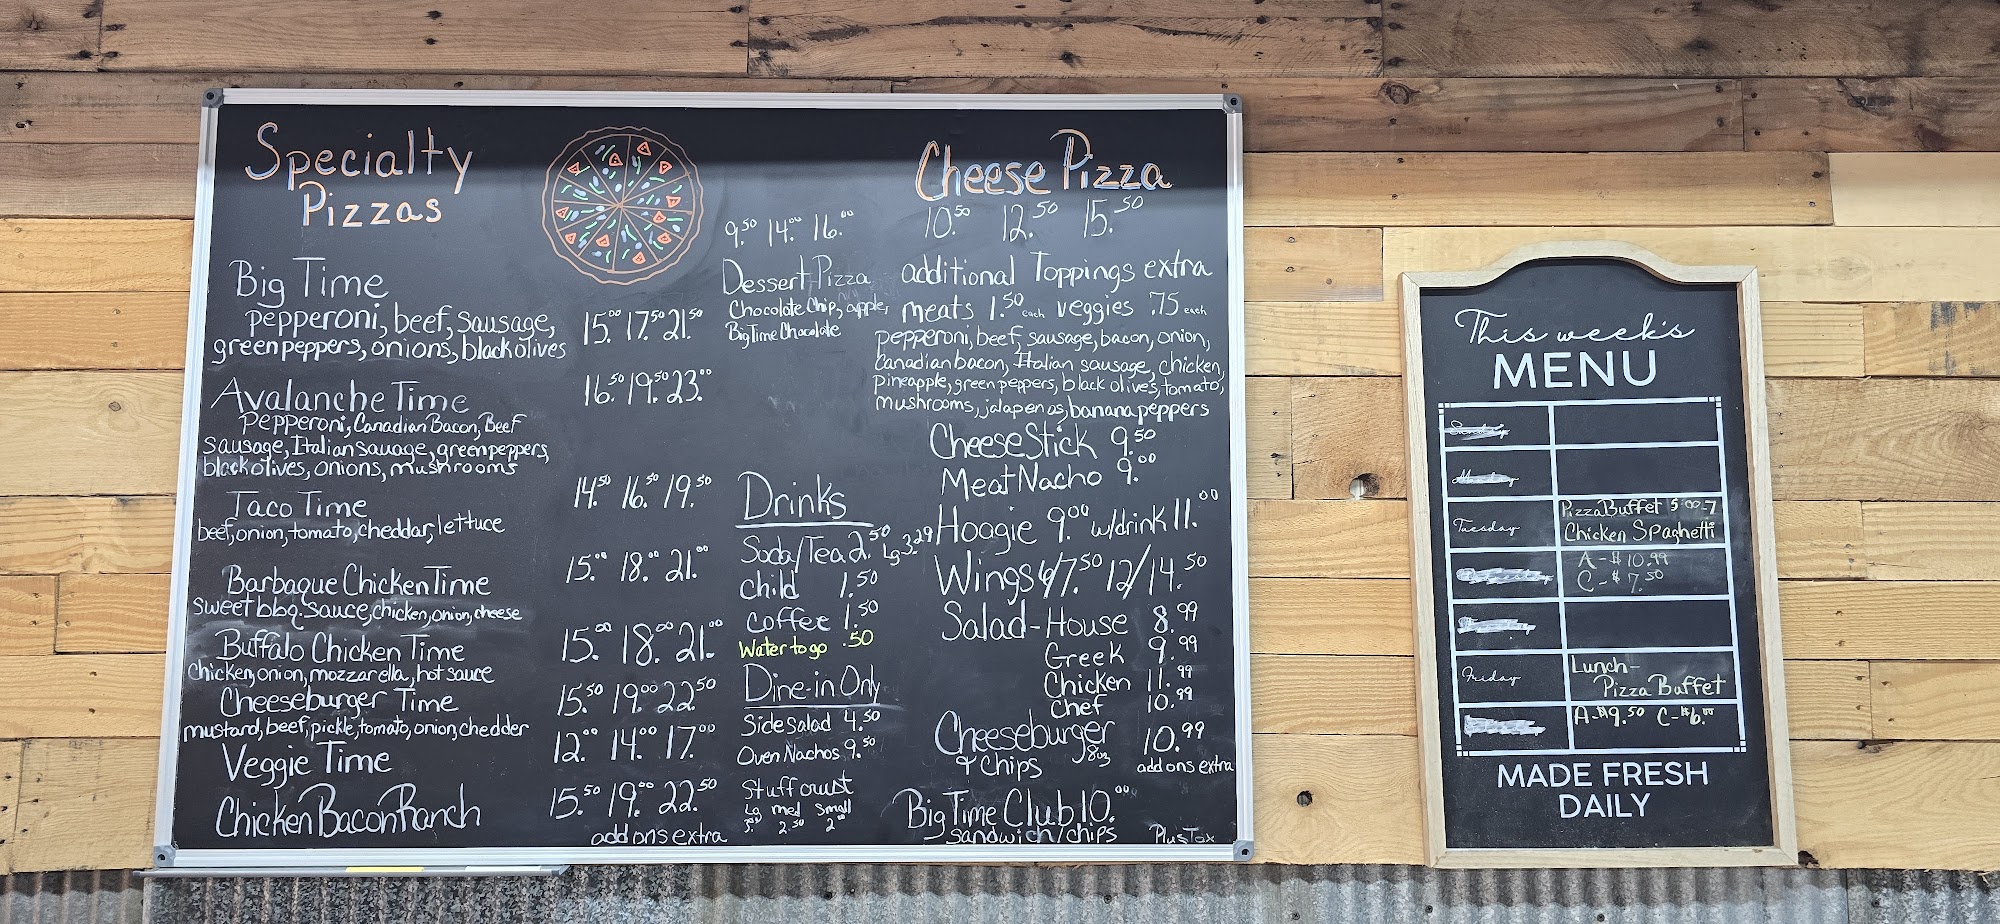 Specialty
Pizzas
Big Time
pepperoni, beef, sausage,
green peppers, onions, black olives
15.00 17.50 21.50
Avalanche Time
16.50 19.50 23.00
Pepperoni, Canadian Bacon, Beef
Sausage, Italian Sausage, green peppers,
black olives, onions, mushrooms
Taco Time
14.50 16.50 19.50
beef, onion, tomato, cheddar, lettuce
Barbaque Chicken Time
15.00 18.00 21.00
Sweet bbq sauce, chicken, onion, cheese
Buffalo Chicken Time
15.00 18.00 21.00
Chicken, onion, mozzarella, hot sauce
Cheeseburger Time
15.50 19.00 22.50
mustard, beef, pickle, tomato, onion, chedder
Veggie Time
12.00 14.00 17.00
Chicken Bacon Ranch
15.50 19.00 22.50
add ons extra
9.50 14.00 16.00
Dessert Pizza
Chocolate Chip, apple,
Big Time Chocolate
Drinks
Soda/Tea 2.50 Lg 3.29
Child 1.50
Coffee 1.50
Water to go .50
Dine-in Only
Side Salad 4.50
Oven Nachos 9.50
Stuff crust
Lg med small
3. 2.50 2.00
Cheese Pizza
10.50 12.50 15.50
additional Toppings extra
meats 1.50 each veggies .75 each
pepperoni, beef, sausage, bacon, onion,
Canadian bacon, Italian sausage, chicken,
Pineapple, green peppers, black olives, tomato,
mushrooms, jalapenos, banana peppers
Cheese Stick 9.50
Meat Nacho 9.00
Hoagie 9.00 w/drink 11.00
Wings 6/7.50 12/14.50
Salad - House 8.99
Greek 9.99
Chicken 11.99
Chef 10.99
Cheeseburger 8oz 10.99
& Chips add ons extra
Big Time Club 10.00
sandwich/chips
Plus Tax
This week's
MENU
Tuesday
Pizza Buffet 5:00-7
Chicken Spaghetti
A - $10.99
C - $7.50
Friday
Lunch-
Pizza Buffet
A - $9.50 C - $6.00
MADE FRESH
DAILY